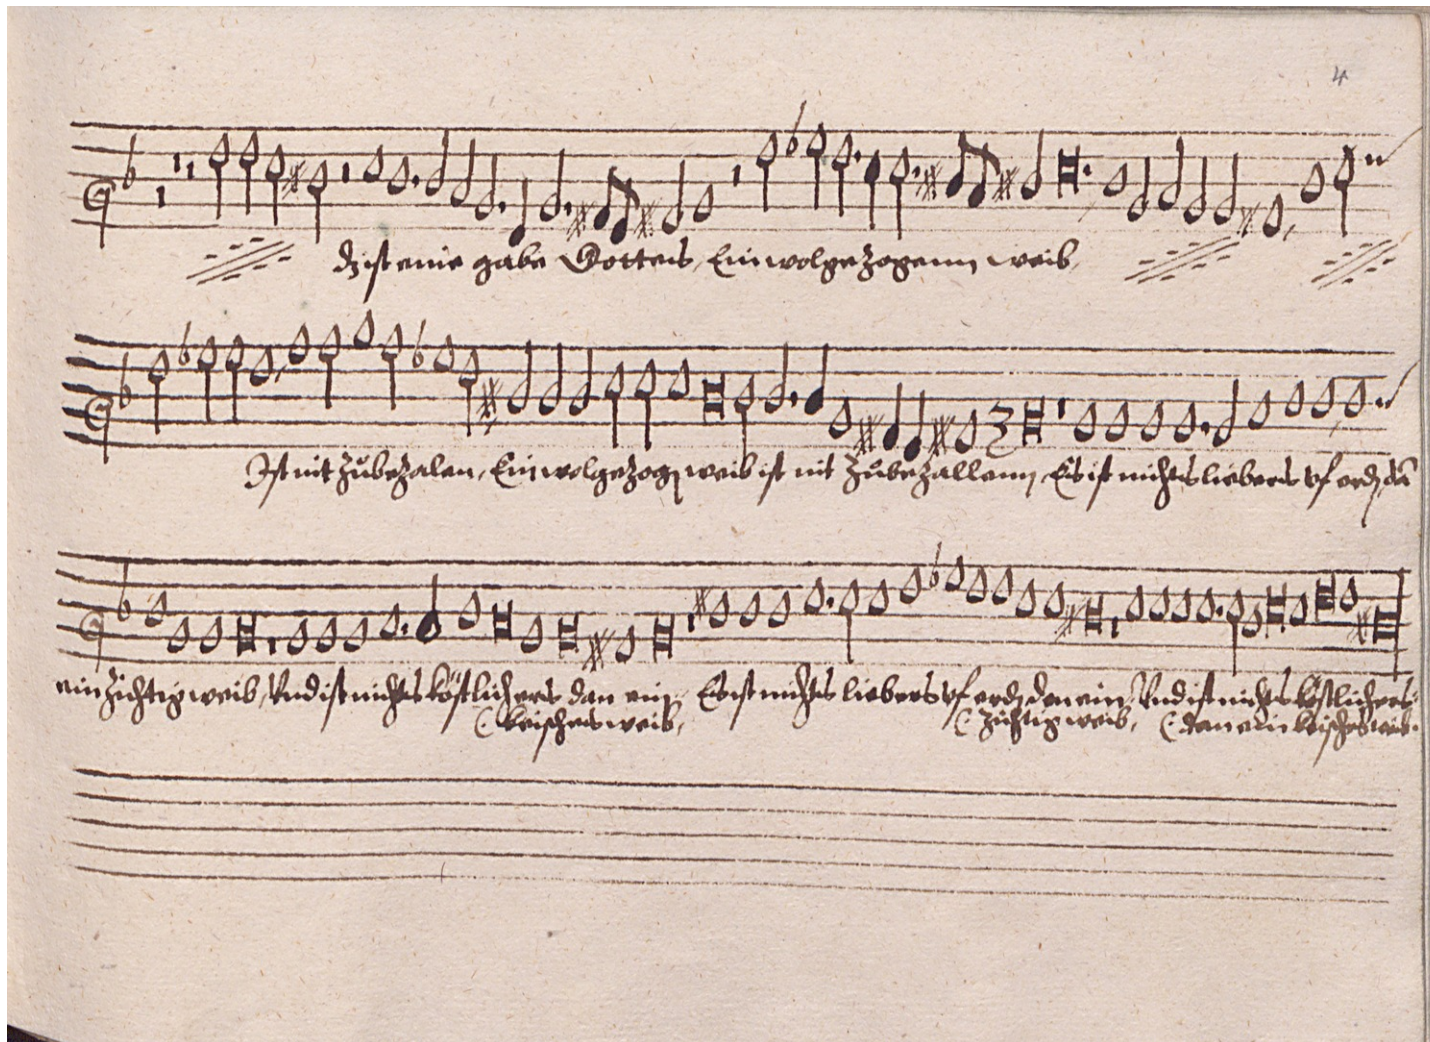 4
dz ist eine gabe Gottes, Ein wolgezogenn weib,
Ist nit zůbezalen, Ein wolgezogen weib ist nit zůbezallenn, Es ist nichts liebers vf erd, dan
ein züchtig weib, Vnd ist nichts köstlichers dan ein, Es ist nichts liebers vf erd, den ein, Vnd ist nichts köstlichers
keisches weib, züchtig weib, dan ein keisches weib.